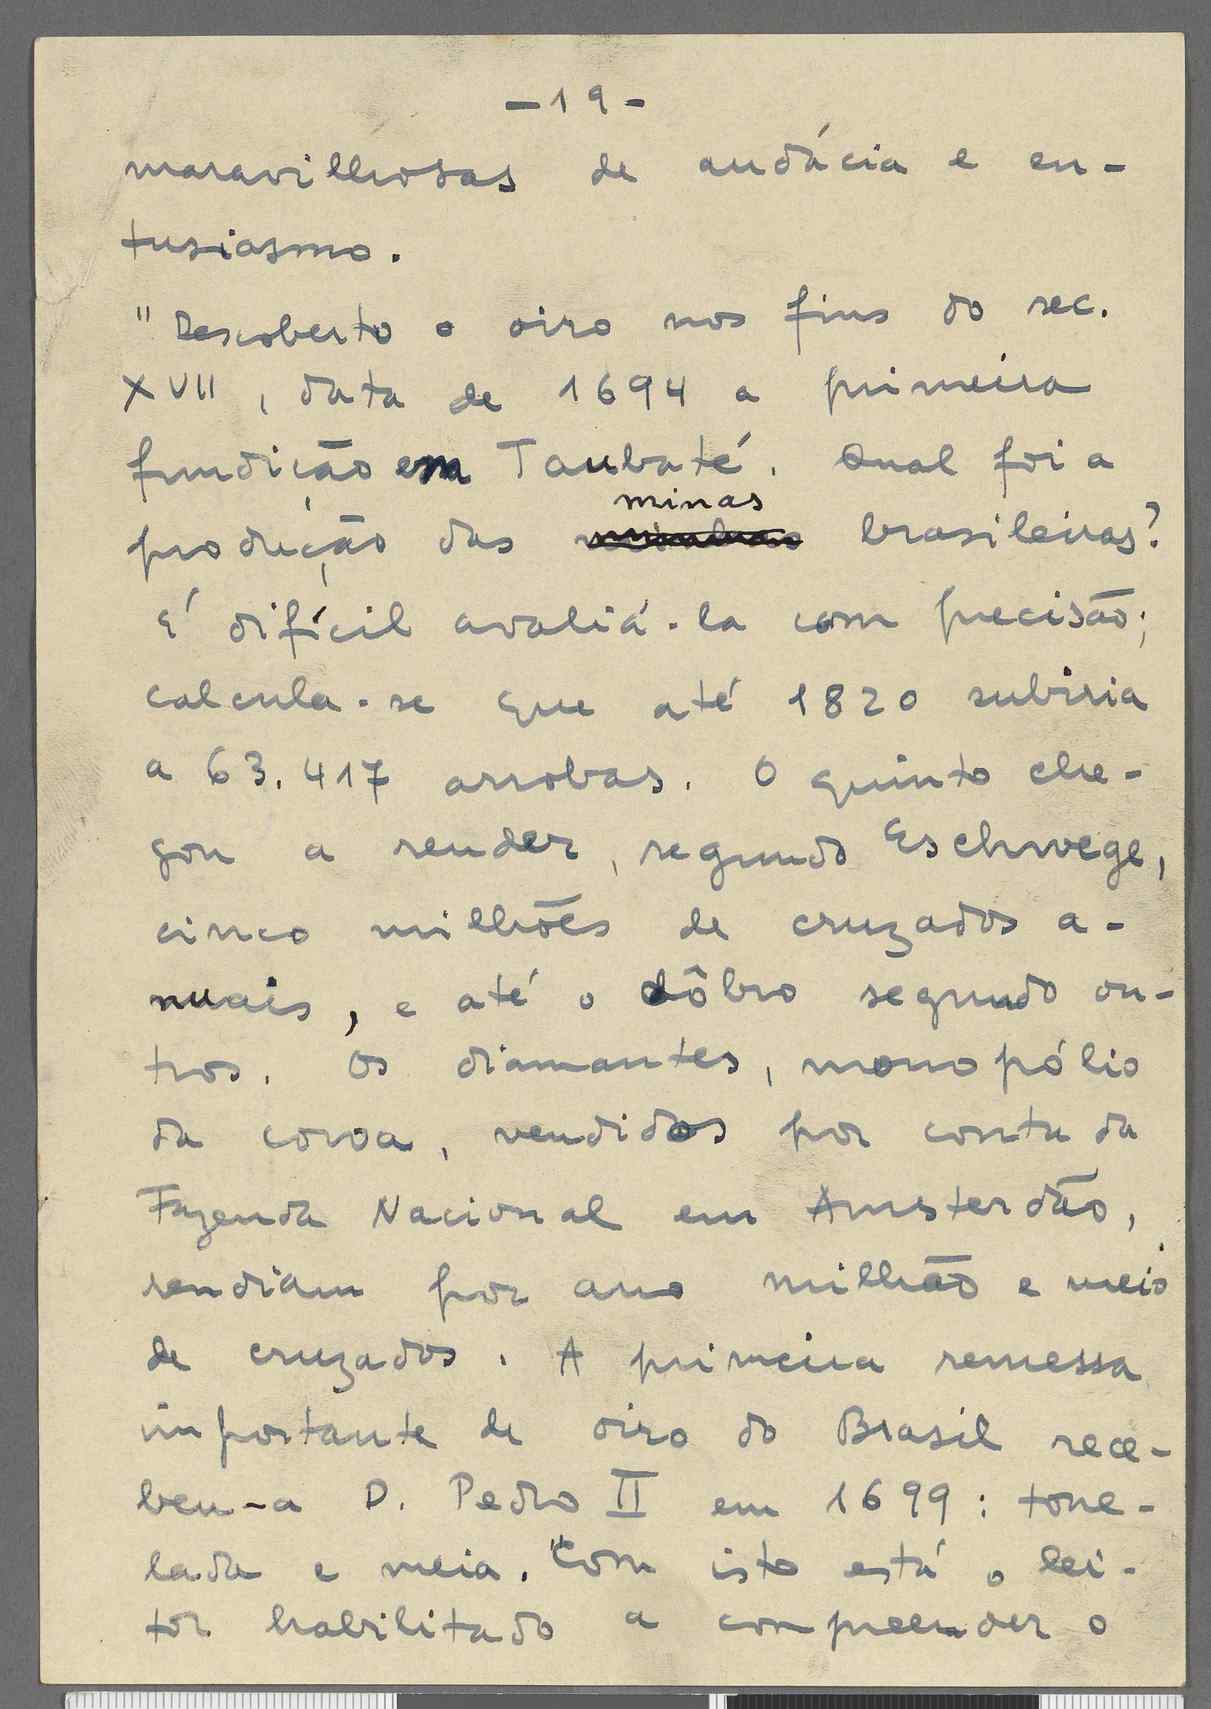 - 19 -
maravilhosas de audácia e en-
tusiasmo.
"Descoberto o oiro nos fins do sec.
XVII, data de 1694 a primeira
fundição em Taubaté. Qual foi a
minas
produção das brasileiras?
É difícil avaliá-la com precisão;
calcula-se que até 1820 subiria
a 63.417 arrobas. O quinto che-
gou a render, segundo Eschwege,
cinco milhões de cruzados a-
nuais, e até o dôbro segundo ou-
tros. Os diamantes, monopólio
da coroa, vendidos por conta da
Fazenda Nacional em Amsterdão,
rendiam por ano milhão e meio
de cruzados. A primeira remessa
importante de oiro do Brasil rece-
beu-a D. Pedro II em 1699: tone-
lada e meia. "Com isto está o lei-
tor habilitado a compreender o